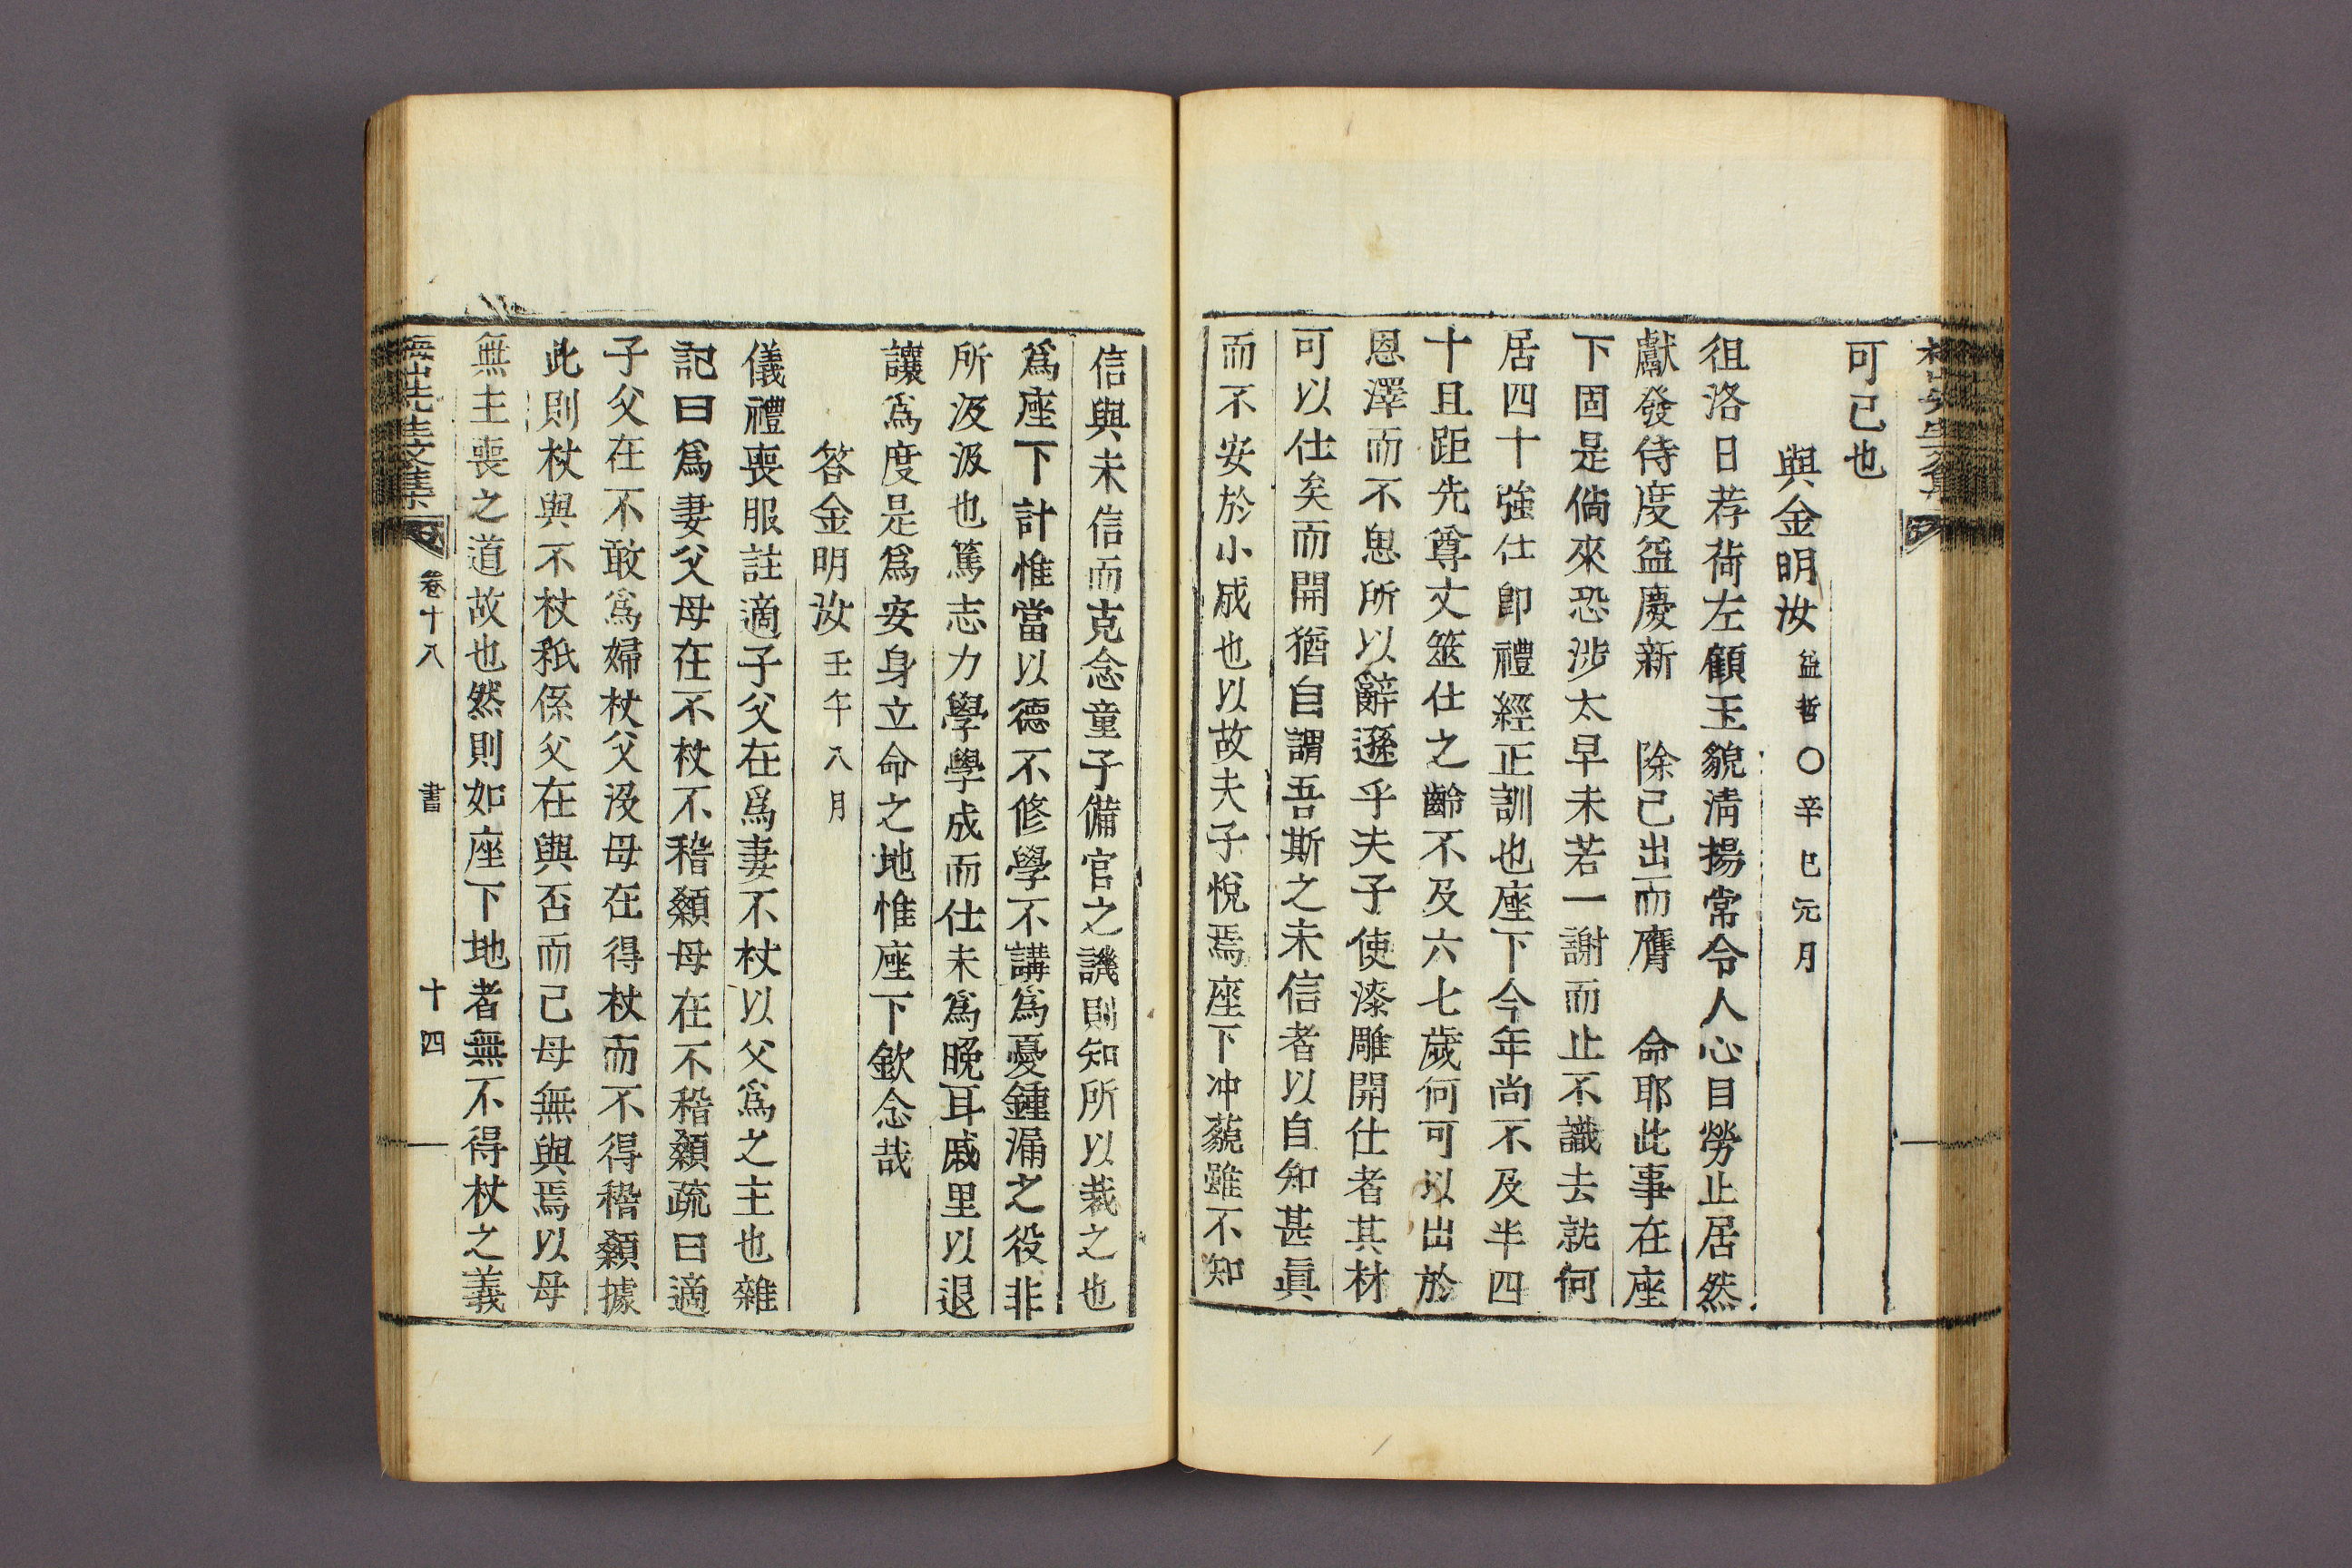 可已也
與金明汝益哲○辛巳元月
徂洛日荐荷左顧玉貌淸揚常令人心目勞止居然
獻發侍度益慶新 除已出而膺 命耶此事在座
下固是倘來恐涉太早未若一謝而止不識去就何
居四十強仕卽禮經正訓也座下今年尙不及半四
十且距先尊丈筮仕之齡不及六七歲何可以出於
恩澤而不思所以辭遜乎夫子使漆雕開仕者其材
可以仕矣而開猶自謂吾斯之未信者以自知甚眞
而不安於小成也以故夫子悅焉座下冲藐雖不知
信與未信而克念童子備官之譏則知所以裁之也
爲座下計惟當以德不修學不講爲憂鍾漏之役非
所汲汲也篤志力學學成而仕未爲晚耳戚里以退
讓爲度是爲安身立命之地惟座下欽念哉
答金明汝壬午八月
儀禮喪服註適子父在爲妻不杖以父爲之主也雜
記曰爲妻父母在不杖不稽顙母在不稽顙疏曰適
子父在不敢爲婦杖父沒母在得杖而不得稽顙據
此則杖與不杖秖係父在與否而已母無與焉以母
無主喪之道故也然則如座下地者無不得杖之義
梅山先生文集 卷十八 書 十四